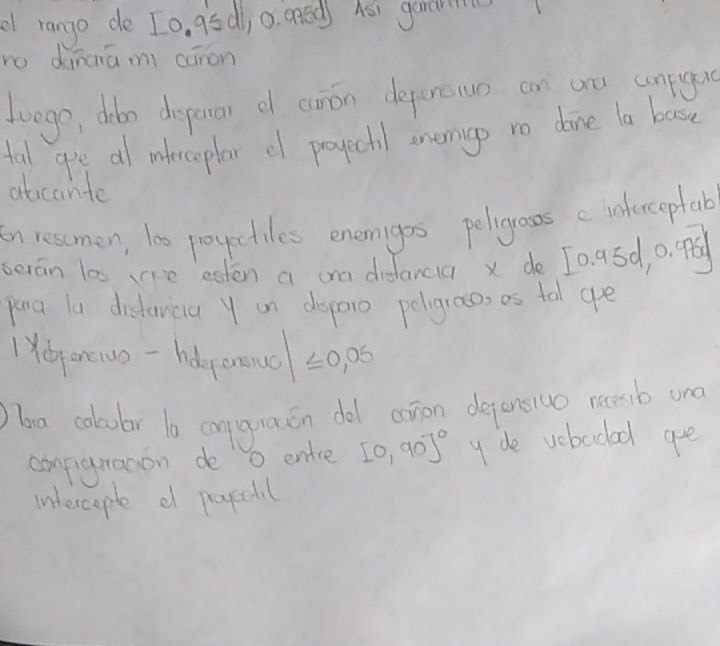 el rango de [0.95d, 0.975d] Así
no dañará mi cañón
Luego, debo disparar el cañón defensivo con una
tal que al interceptar el proyectil enemigo no dañe la base
atacante
En resumen, los proyectiles enemigos peligrosos e interceptabl
serán los que estén a una distancia x de [0.95d, 0.975d]
para la distancia y un disparo peligroso, es tal que
|Yofensivo - hdefensivo| ≤ 0,05
) Para calcular la configuración del cañón defensivo necesito una
configuración de θ entre [0, 90]° y de velocidad que
intercepte el proyectil